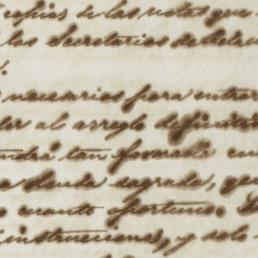 copias de las notas que
los Secretarios de Rela
necesarios para entrar
der al arreglo definitiv
endrá tan favorable en
a deuda sagrada, que
cuanto oportuno.
instrucciones, y solo